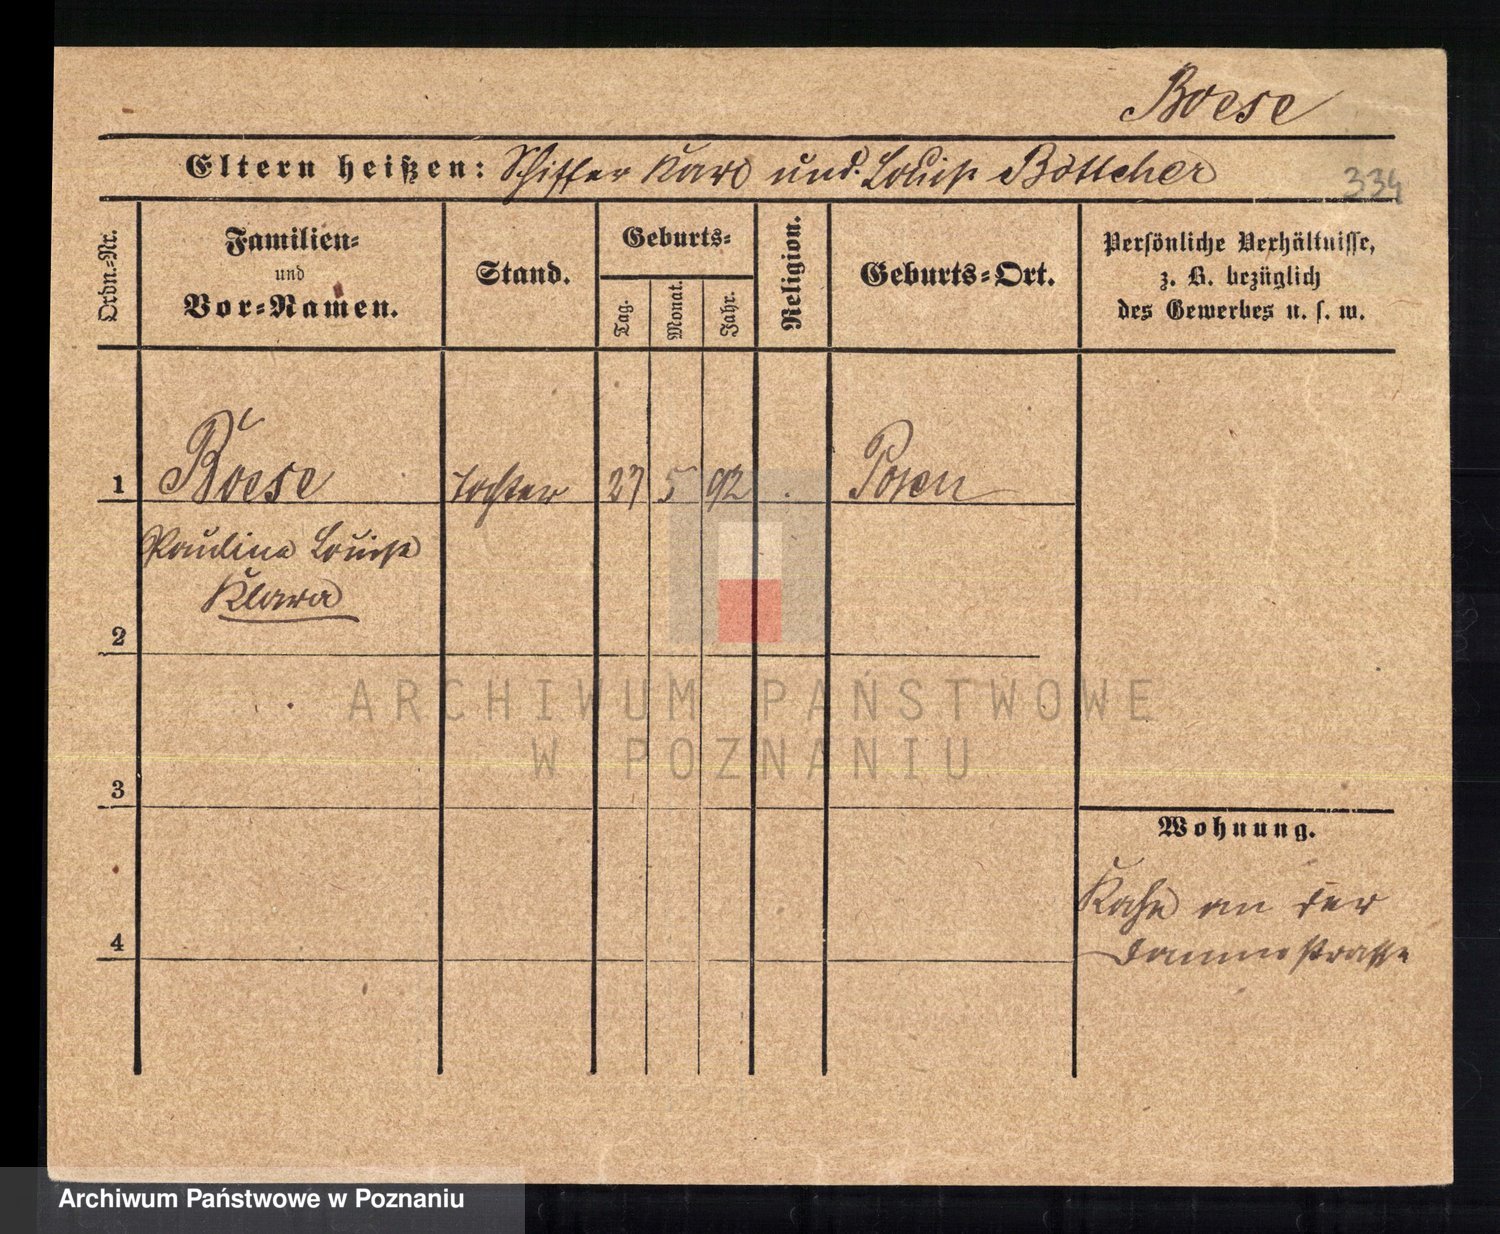 Boese
Eltern heißen: Schiffer Karl und Louise Böttcher
334
Ordn.-Nr.
Familien-
und
Vor-Namen.
Stand.
Geburts-
Tag.
Monat.
Jahr.
Religion.
Geburts-Ort.
Persönliche Verhältnisse,
z. B. bezüglich
des Gewerbes u. s. w.
1 Boese Tochter 27 5 92 Posen
Pauline Louise
Klara
2
3
4
Wohnung.
Kahn an der
Dammstrasse
ARCHIWUM PAŃSTWOWE
W POZNANIU
Archiwum Państwowe w Poznaniu